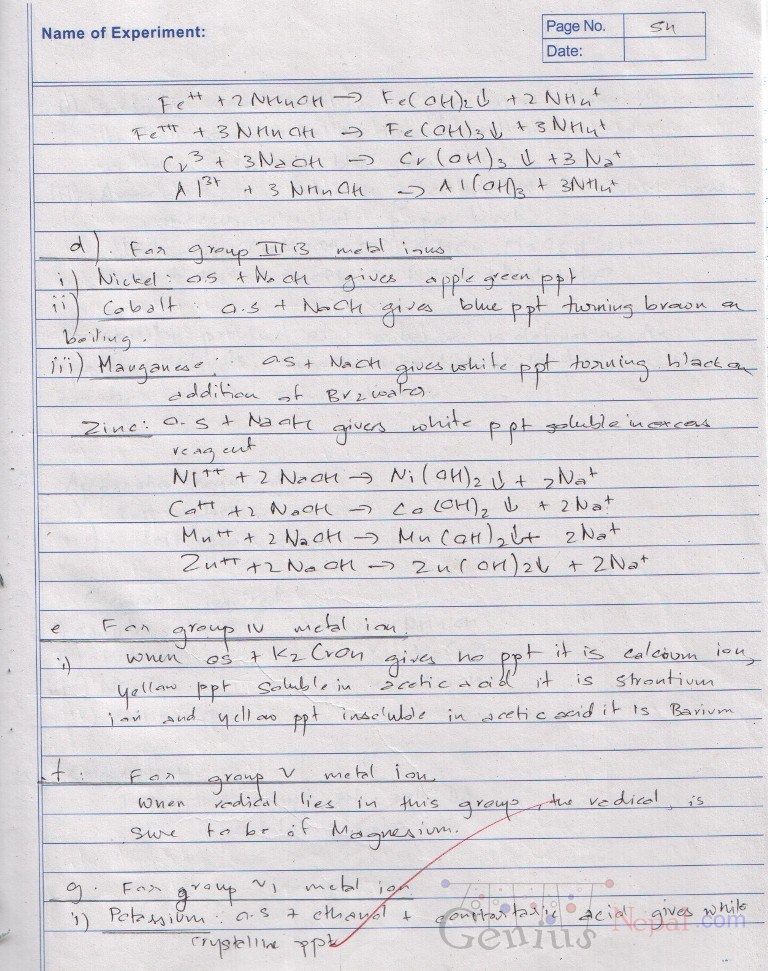 Name of Experiment:
Page No. 54
Date:
Fe++ + 2NH4OH → Fe(OH)2↓ + 2NH4+
Fe+++ + 3NH4OH → Fe(OH)3↓ + 3NH4+
Cr3 + 3NaOH → Cr(OH)3↓ + 3Na+
Al3+ + 3NH4OH → Al(OH)3 + 3NH4+
d). For group III B metal ions
i) Nickel: o.s + NaOH gives apple green ppt
ii) Cobalt: o.s + NaOH gives blue ppt turning brown on
boiling.
iii) Manganese: o.s + NaOH gives white ppt turning black on
addition of Br2 water
Zinc: o.s + NaOH givers white ppt soluble in excess
reagent
Ni++ + 2NaOH → Ni(OH)2↓ + 2Na+
Co++ + 2NaOH → Co(OH)2↓ + 2Na+
Mn++ + 2NaOH → Mn(OH)2↓ + 2Na+
Zn++ + 2NaOH → Zn(OH)2↓ + 2Na+
e For group IV metal ion.
i) When os + K2CrO4 gives no ppt it is calcium ion,
Yellow ppt soluble in acetic acid it is strontium
ion and yellow ppt insoluble in acetic acid it is Barium
f. For group V metal ion.
When radical lies in this group, the radical is
sure to be of Magnesium.
g. For group VI metal ion
i) Potassium: o.s + ethanol + tartaric acid gives white
crystalline ppt
Genius Nepal.com